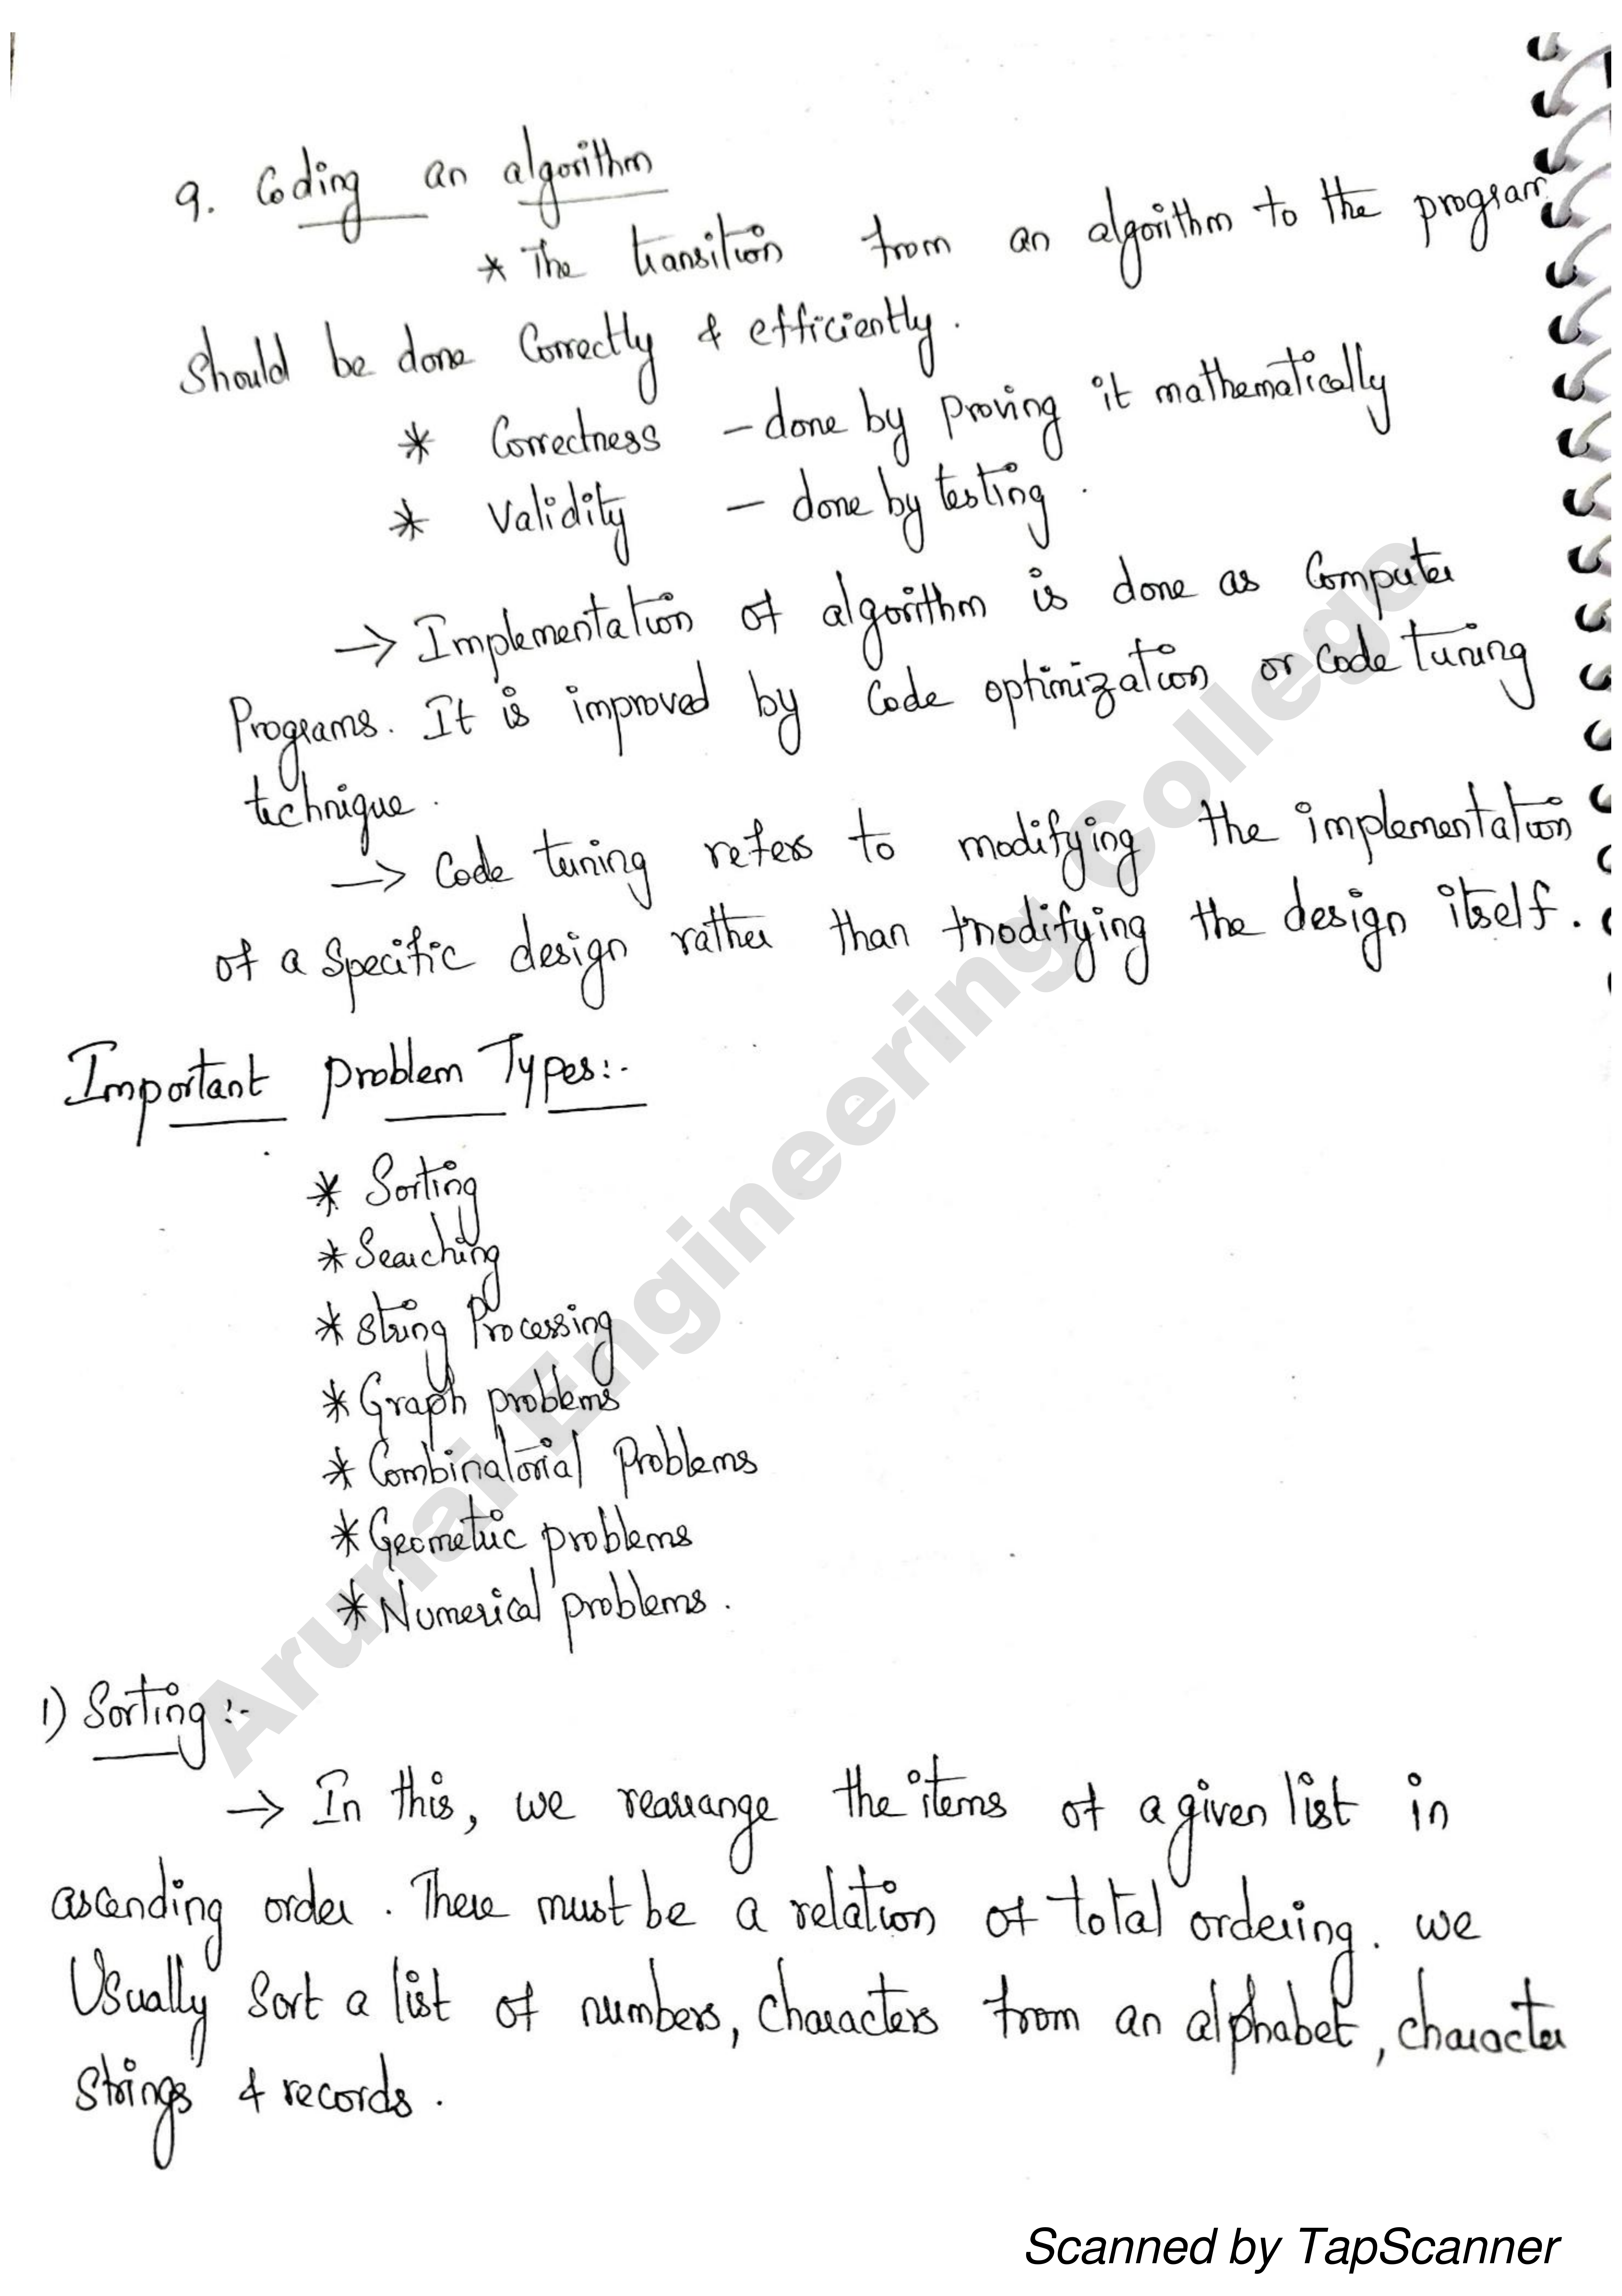 9. Coding an algorithm
* The transition from an algorithm to the program
should be done correctly & efficiently.
* Correctness - done by proving it mathematically
* Validity - done by testing.
→ Implementation of algorithm is done as Computer
Programs. It is improved by Code optimization or code tuning
technique.
→ Code tuning refers to modifying the implementation
of a specific design rather than modifying the design itself.
Important problem Types:-
* Sorting
* Searching
* String Processing
* Graph problems
* Combinatorial problems
* Geometric problems
* Numerical problems.
1) Sorting:-
→ In this, we rearrange the items of a given list in
ascending order. There must be a relation of total ordering. we
Usually Sort a list of numbers, characters from an alphabet, character
strings & records.
Arunai Engineering College
Scanned by TapScanner